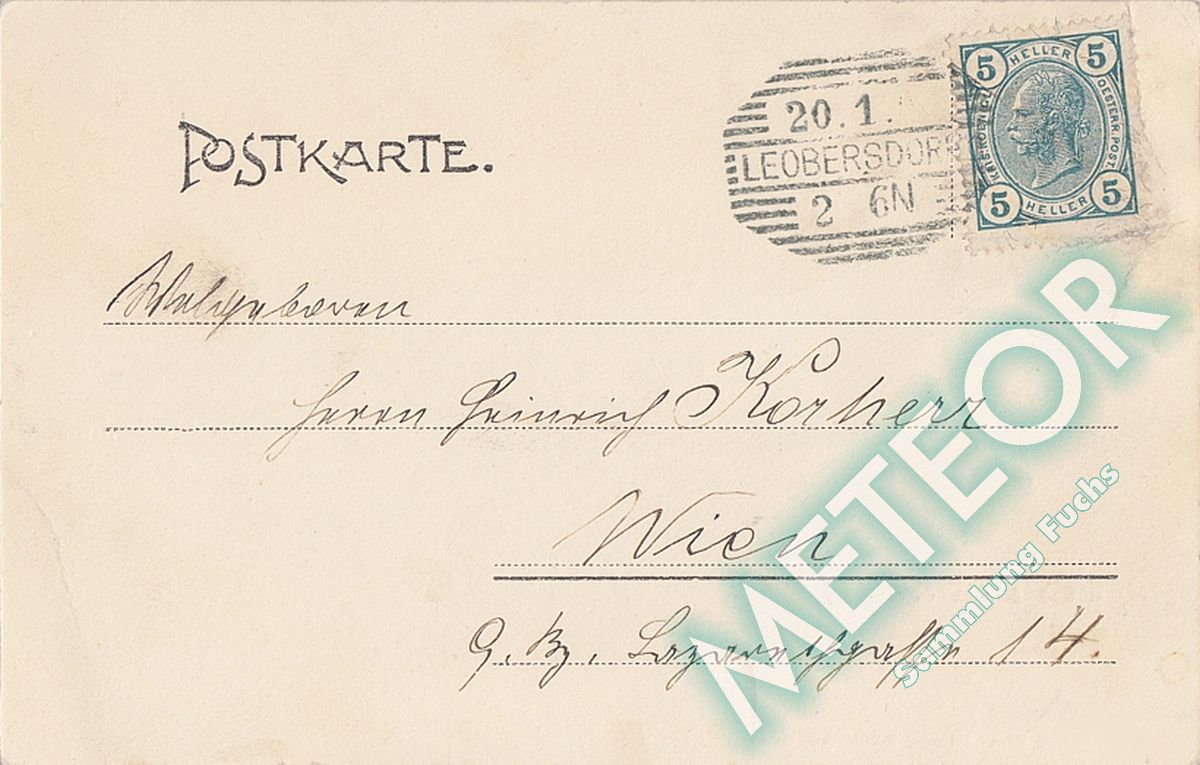 POSTKARTE.
20.1.
LEOBERSDORF
2 6N
5 HELLER 5
KAIS. KOENIGL. OESTERR. POST.
5 HELLER 5
Wolgeboren
Herrn Heinrich Korherr
Wien
9. Bz. Lazarethgasse 14.
METEOR
Sammlung Fuchs